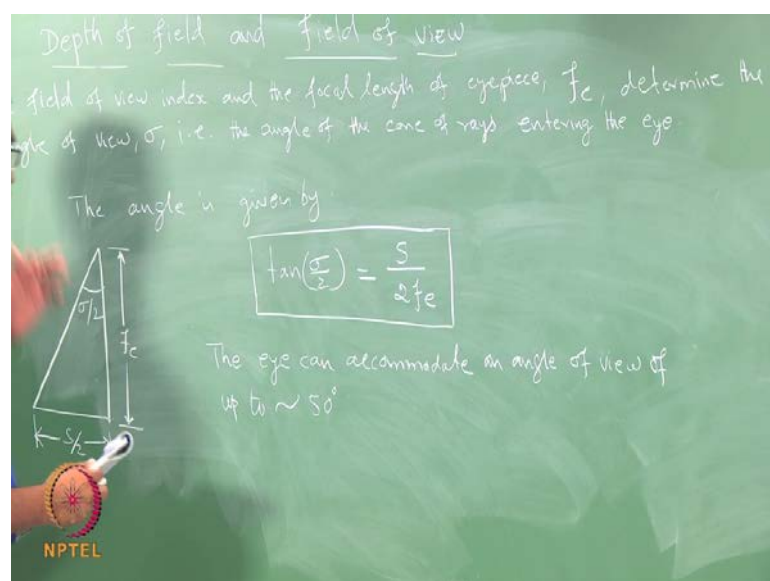 Depth of field and field of view
field of view index and the focal length of eyepiece, fe, determine the
angle of view, σ, i.e. the angle of the cone of rays entering the eye.
The angle is given by
tan(σ/2) = S/2fe
σ/2
fe
S/2
The eye can accommodate an angle of view of
up to ~ 50°
NPTEL